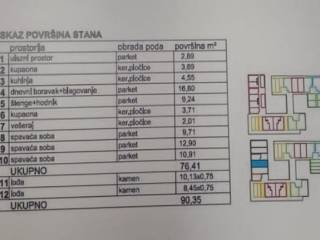 SKAZ POVRŠINA STANA
prostorija obrada poda površina m²
1 ulazni prostor parket 2,69
2 kupaona ker.pločice 3,69
3 kuhinja ker.pločice 4,55
4 dnevni boravak+blagovanje parket 16,60
5 šlenge+hodnik parket 9,24
6 kupaona ker.pločice 3,71
7 vešeraj ker.pločice 2,01
8 spavaća soba parket 9,71
9 spavaća soba parket 12,90
10 spavaća soba parket 10,91
UKUPNO 76,41
11 lođa kamen 10,13x0,75
12 lođa kamen 8,45x0,75
UKUPNO 90,35